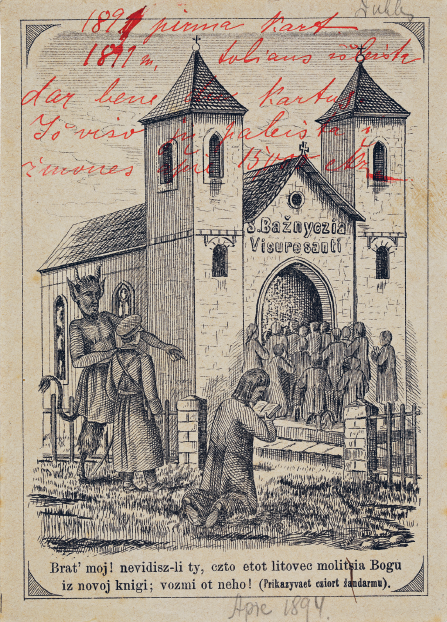 1891 pirma Kart
1891 m, toliaus išleista
dar bene Kartus
Iš viso paleista į
žmones 1500
S. Bažnyczia
Visuresanti
Brat' moj! nevidisz-li ty, czto etot litovec molitsia Bogu
iz novoj knigi; vozmi ot neho! (Prikazyvaet cziort žandarmu).
Apie 1894.